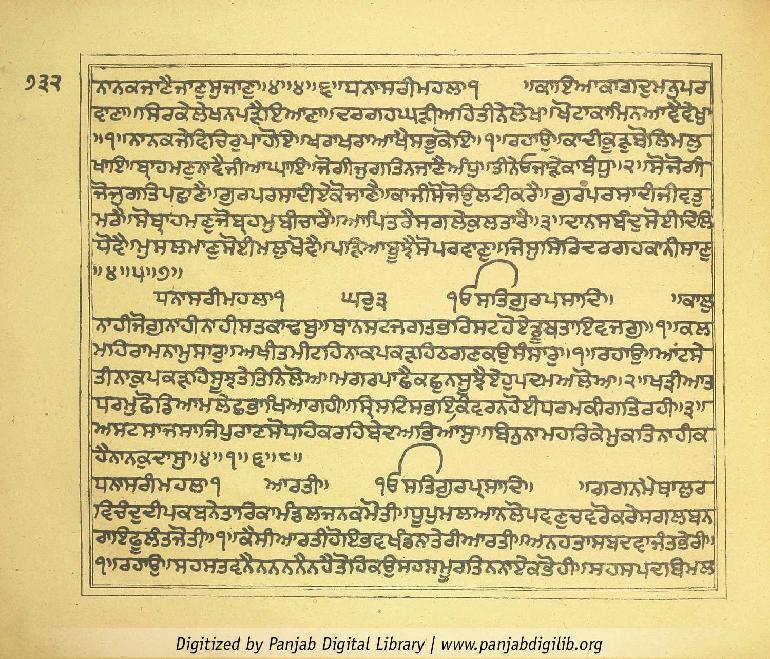 ੧੩੨
ਨਾਨਕਜਾਣੈਜਾਣੁਸੁਜਾਣੁ॥੪॥੪॥੬॥ਧਨਾਸਰੀਮਹਲਾ੧ ॥ਕਾਇਆਕਾਗਦੁਮਨੁਪਰ
ਵਾਣਾ॥ਸਿਰਕੇਲੇਖਨਪੜੈਇਆਣਾ॥ਦਰਗਹਘੜੀਅਹਿਤੀਨੇਲੇਖ॥ਖੋਟਾਕਾਮਿਨਆਵੈਵੇਖੁ
॥੧॥ਨਾਨਕਜੇਵਿਚਿਰੁਪਾਹੋਇ॥ਖਰਾਖਰਾਆਖੈਸਭੁਕੋਇ॥੧॥ਰਹਾਉ॥ਕਾਦੀਕੂੜੁਬੋਲਿਮਲੁ
ਖਾਇ॥ਬ੍ਰਾਹਮਣੁਨਾਵੈਜੀਆਘਾਇ॥ਜੋਗੀਜੁਗਤਿਨਜਾਣੈਅੰਧੁ॥ਤੀਨੇਓਜਾੜੇਕਾਬੰਧੁ॥੨॥ਸੋਜੋਗੀ
ਜੋਜੁਗਤਿਪਛਾਣੈ॥ਗੁਰਪਰਸਾਦੀਏਕੋਜਾਣੈ॥ਕਾਜੀਸੋਜੋਉਲਟੀਕਰੈ॥ਗੁਰਪਰਸਾਦੀਜੀਵਤੁ
ਮਰੈ॥ਸੋਬ੍ਰਾਹਮਣੁਜੋਬ੍ਰਹਮੁਬੀਚਾਰੈ॥ਆਪਿਤਰੈਸਗਲੇਕੁਲਤਾਰੈ॥੩॥ਦਾਨਸਬੰਦੁਸੋਈਦਿਲਿ
ਧੋਵੈ॥ਮੁਸਲਮਾਣੁਸੋਈਮਲੁਖੋਵੈ॥ਪੜਿਆਬੂਝੈਸੋਪਰਵਾਣੁ॥ਜਿਸੁਸਿਰਿਦਰਗਹਕਾਨੀਸਾਣੁ
॥੪॥੫॥੭॥
ਧਨਾਸਰੀਮਹਲਾ੧ ਘਰੁ੩ ੧ਓਸਤਿਗੁਰਪ੍ਰਸਾਦਿ॥ ॥ਕਾਲੁ
ਨਾਹੀਜੋਗੁਨਾਹੀਨਾਹੀਸਤਕਾਢਬੁ॥ਥਾਨਸਟਜਗਭਰਿਸਟਹੋਏਡੂਬਤਾਇਵਜਗੁ॥੧॥ਕਲ
ਮਹਿਰਾਮਨਾਮੁਸਾਰੁ॥ਅਖੀਤਮੀਟਹਿਨਾਕਪਕੜਹਿਠਗਣਕਉਸੰਸਾਰੁ॥੧॥ਰਹਾਉ॥ਆਂਟਸੇ
ਤੀਨਾਕੁਪਕੜਹਿਸੂਝਤੇਤਿਨਿਲੋਅ॥ਮਗਰਪਾਛੈਕਛੁਨਸੂਝੈਏਹੁਪਦਮਅਲੋਅ॥੨॥ਖਤ੍ਰੀਆਤ
ਧਰਮੁਛੋਡਿਆਮਲੇਛਭਾਖਿਆਗਹੀ॥ਸ੍ਰਿਸਟਿਸਭਇਕਵਰਨਹੋਈਧਰਮਕੀਗਤਿਰਹੀ॥੩॥
ਅਸਟਸਾਜਸਾਜਿਪੁਰਾਣਸੋਧਹਿਕਰਹਿਬੇਦਅਭਿਆਸੁ॥ਬਿਨੁਨਾਮਹਰਿਕੇਮੁਕਤਿਨਾਹੀਕ
ਹੈਨਾਨਕੁਦਾਸੁ॥੪॥੧॥੬॥੮॥
ਧਨਾਸਰੀਮਹਲਾ੧ ਆਰਤੀ॥ ੧ਓਸਤਿਗੁਰਪ੍ਰਸਾਦਿ॥ ॥ਗਗਨਮੈਥਾਲੁਰ
ਵਿਚੰਦੁਦੀਪਕਬਨੇਤਾਰਿਕਾਮੰਡਲਜਨਕਮੋਤੀ॥ਧੂਪੁਮਲਆਨਲੋਪਵਣੁਚਵਰੋਕਰੇਸਗਲਬਨ
ਰਾਇਫੂਲੰਤਜੋਤੀ॥੧॥ਕੈਸੀਆਰਤੀਹੋਇਭਵਖੰਡਨਾਤੇਰੀਆਰਤੀ॥ਅਨਹਤਾਸਬਦਵਾਜੰਤਭੇਰੀ॥
੧॥ਰਹਾਉ॥ਸਹਸਤਵਨੈਨਨਨਨੈਨਹੈਤੋਹਿਕਉਸਹਸਮੂਰਤਿਨਨਾਏਕਤੋਹੀ॥ਸਹਸਪਦਬਿਮਲ
Digitized by Panjab Digital Library | www.panjabdigilib.org